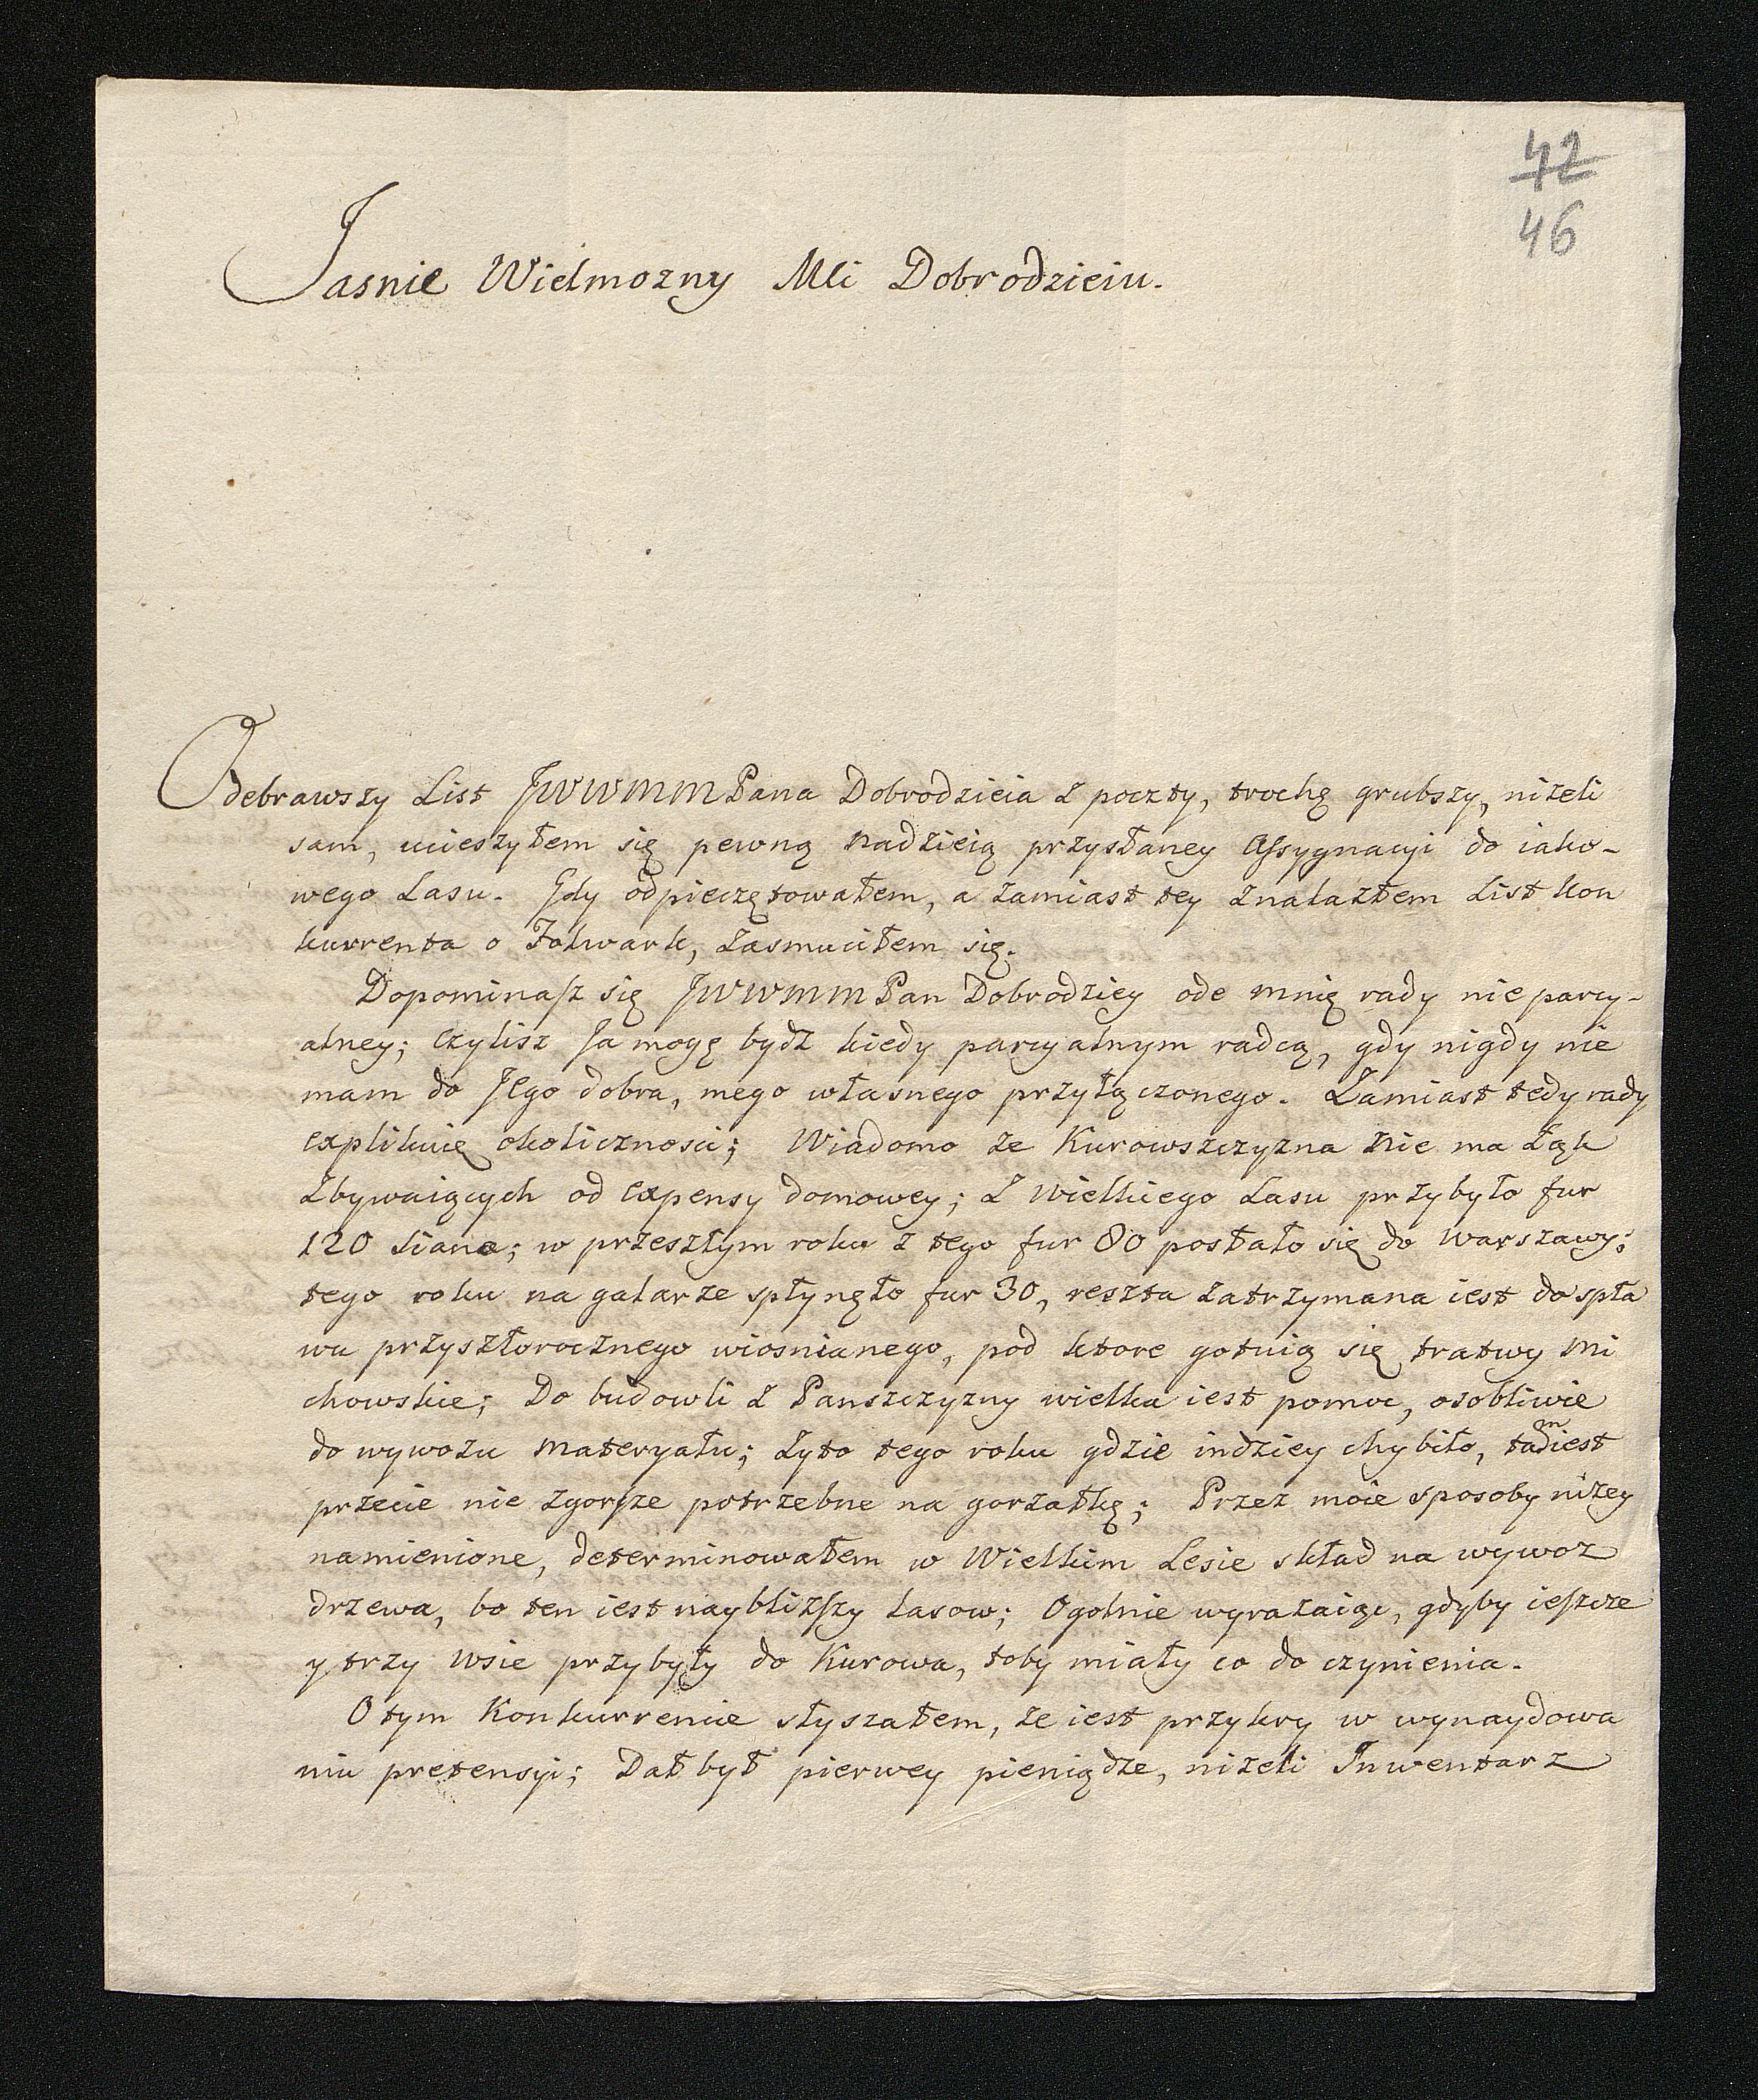 42
46
Jasnie Wielmozny Mći Dobrodzieiu.
Odebrawszy List JWWMMPana Dobrodzieia z poczty, trochę grubszy, niżeli
sam, ucieszyłem się pewną nadzieią przysłaney Assygnacyi do iako-
wego Lasu. Gdy odpieczętowałem, a zamiast tey znalazłem List Kon
kurrenta o Folwark, zasmuciłem się.
Dopominasz się JWWMMPan Dobrodziey ode mnię rady nie parcy-
alney; czylisz Ja mogę bydź kiedy parcyalnym radcą, gdy nigdy nie
mam do Jego dobra, mego własnego przyłączonego. Zamiast tedy rady
explikuię okolicznosci; Wiadomo ze Kurowszczyzna nie ma Łąk
zbywaiących od expensy domowey; z Wielkiego Lasu przybyło fur
120 siana; w przeszłym roku z tego fur 80 posłało się do Warszawy;
tego roku na galarze spłynęło fur 30, reszta zatrzymana iest do spła
wu przyszłorocznego wiosnianego, pod ktore gotuią się tratwy Mi
chowskie; Do budowli z Panszczyzny wielka iest pomoc, osobliwie
do wywozu materyału; żyto tego roku gdzie indziey chybiło, tam iest
przecie nie zgorsze potrzebne na gorzałkę; Przez moie sposoby niżey
namienione, determinowałem w Wielkim Lesie skład na wywoz
drzewa, bo ten iest naybliższy Lasow; Ogolnie wyrażaiąc, gdyby ieszcze
y trzy wsie przybyły do Kurowa, toby miały co do czynienia.
O tym Konkurrencie słyszałem, ze iest przykry w wynaydowa
niu pretensyi; Dał był pierwey pieniądze, niżeli Inwentarz